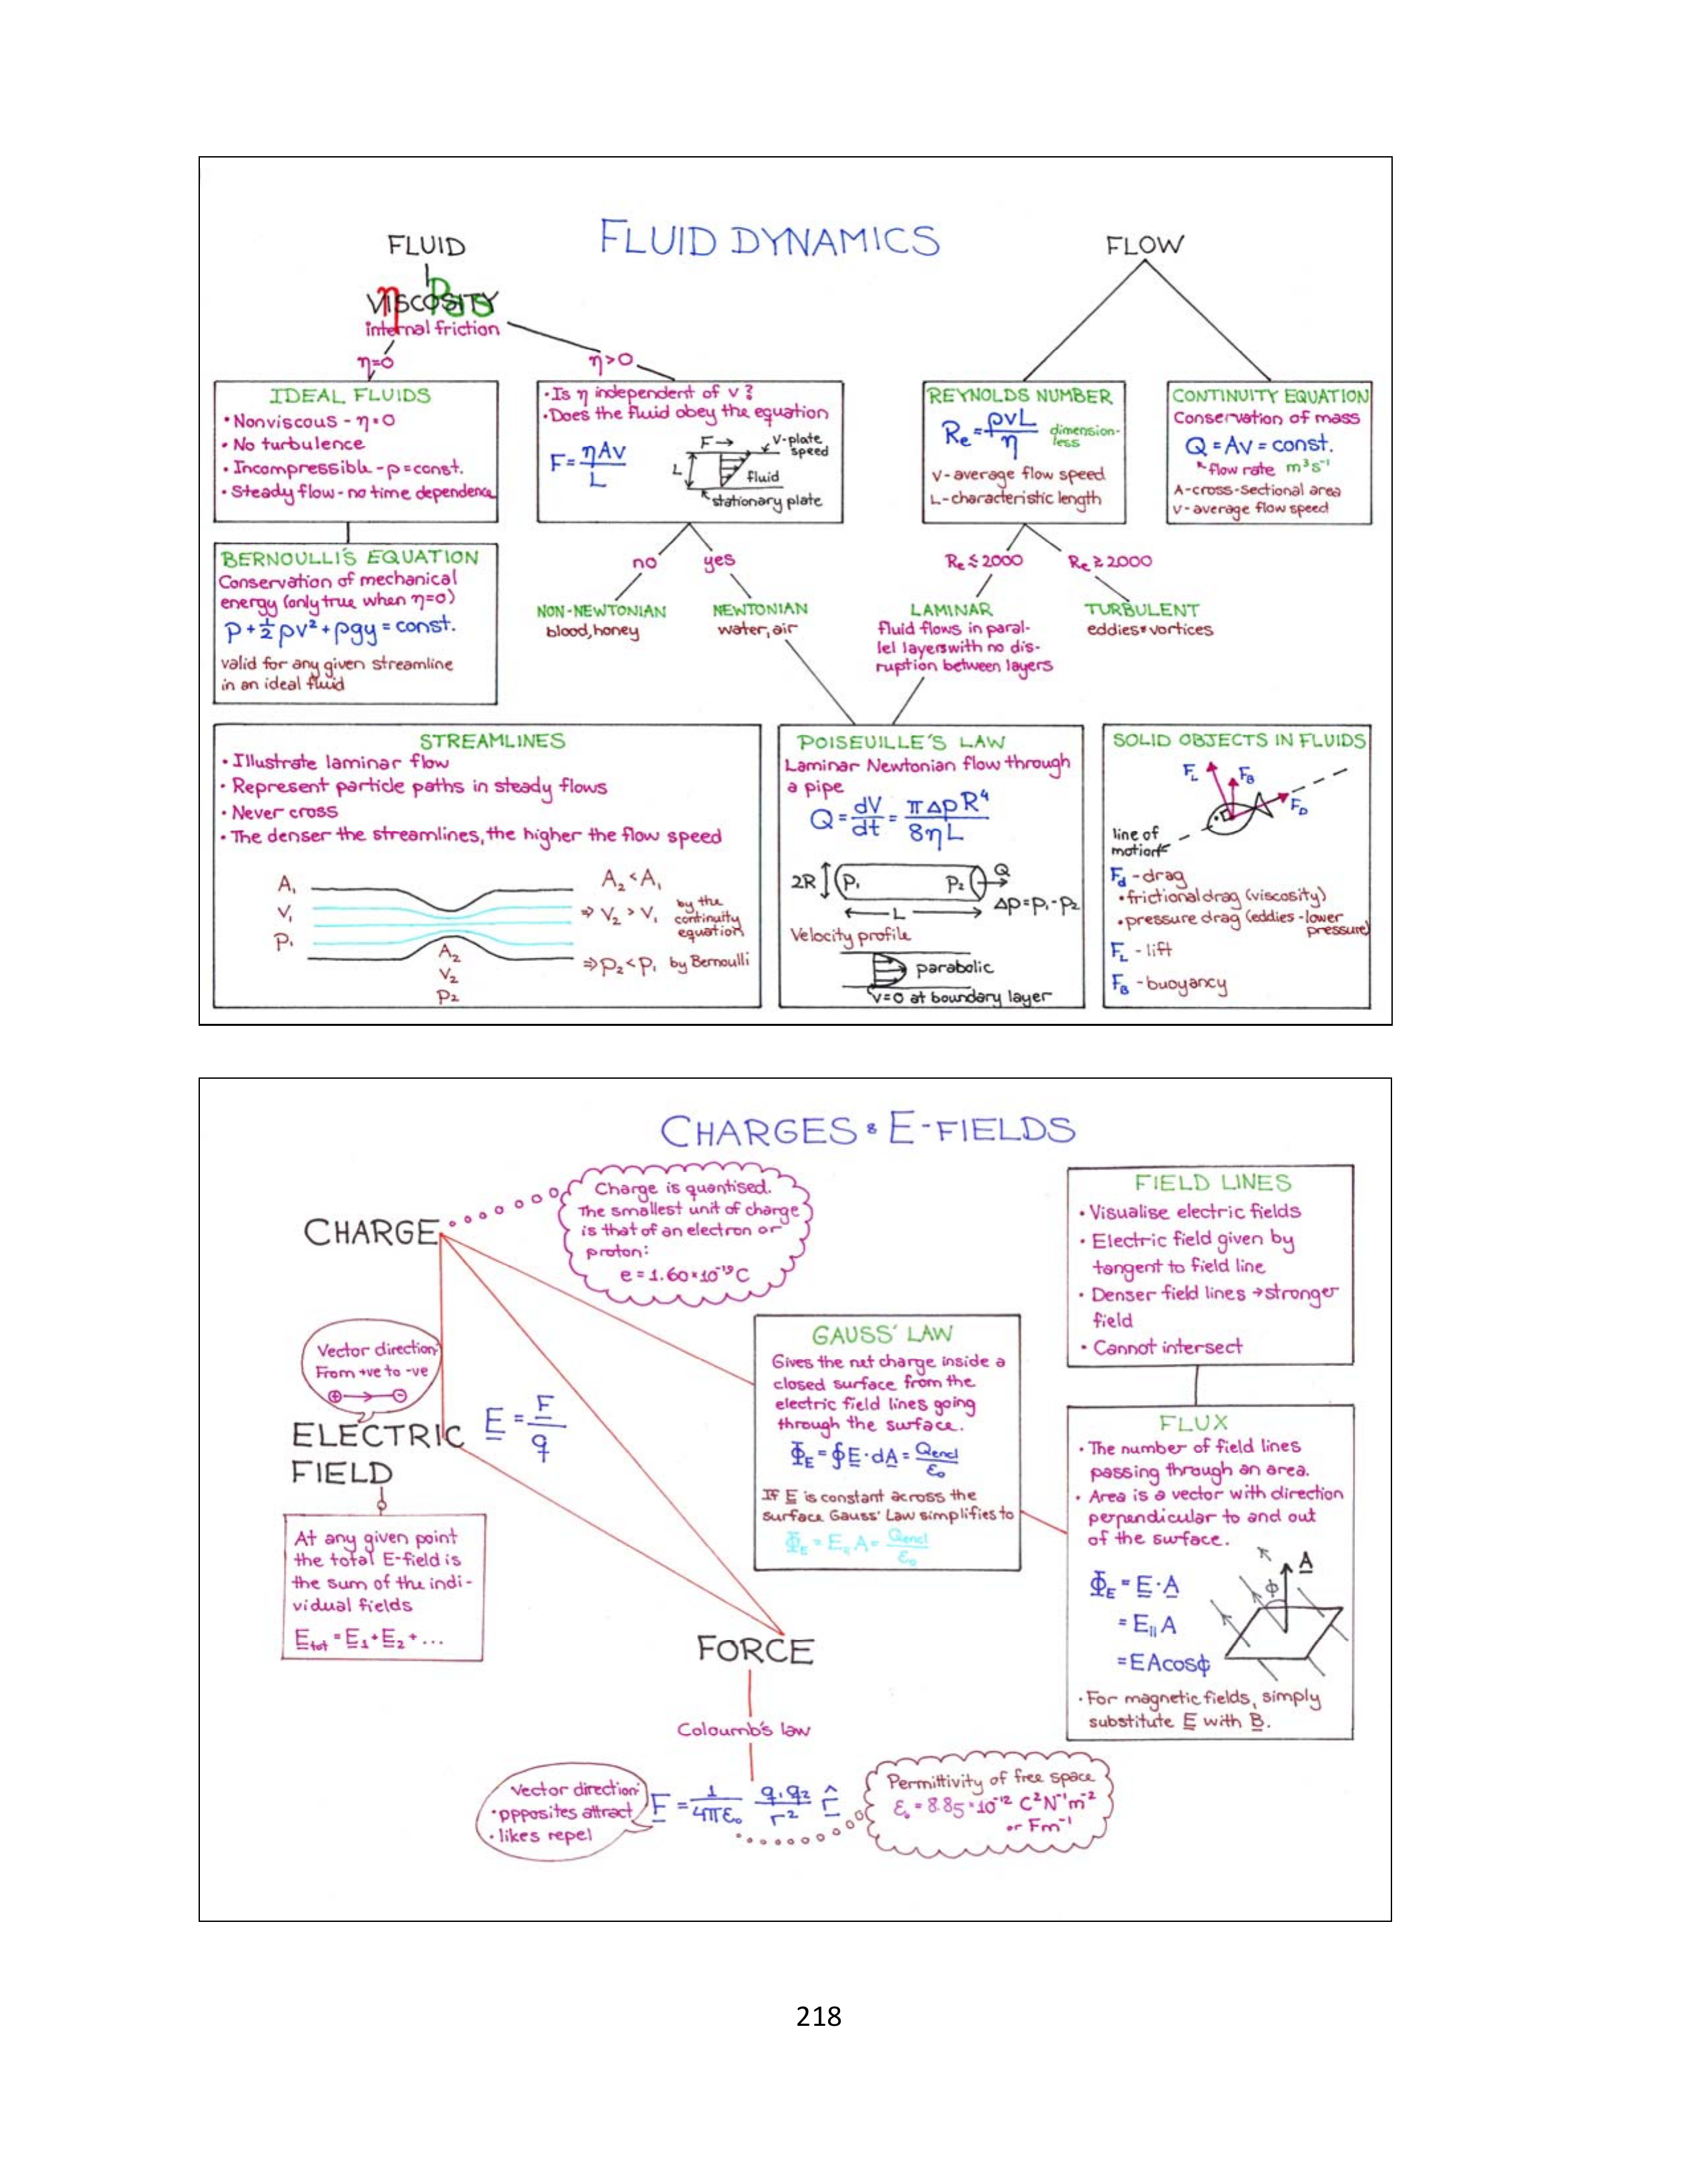 FLUID DYNAMICS
FLUID
VISCOSITY
η Pas
internal friction
η=0
η>0
IDEAL FLUIDS
• Nonviscous - η=0
• No turbulence
• Incompressible - ρ=const.
• Steady flow - no time dependence
BERNOULLI'S EQUATION
Conservation of mechanical
energy (only true when η=0)
p + ½ρv² + ρgy = const.
valid for any given streamline
in an ideal fluid
• Is η independent of v?
• Does the fluid obey the equation
F = ηAv/L
F→
v-plate
speed
L
fluid
stationary plate
no
yes
NON-NEWTONIAN
blood, honey
NEWTONIAN
water, air
FLOW
REYNOLDS NUMBER
Re = ρvL/η dimension-
less
v-average flow speed
L-characteristic length
CONTINUITY EQUATION
Conservation of mass
Q = Av = const.
flow rate m³s⁻¹
A-cross-sectional area
v-average flow speed
Re ≲ 2000
Re ≳ 2000
LAMINAR
fluid flows in paral-
lel layers with no dis-
ruption between layers
TURBULENT
eddies & vortices
STREAMLINES
• Illustrate laminar flow
• Represent particle paths in steady flows
• Never cross
• The denser the streamlines, the higher the flow speed
A₁
V₁
P₁
A₂
V₂
P₂
A₂ < A₁
⇒ V₂ > V₁ by the
continuity
equation
⇒ P₂ < P₁ by Bernoulli
POISEUILLE'S LAW
Laminar Newtonian flow through
a pipe
Q = dV/dt = πΔpR⁴/8ηL
2R
P₁
P₂
Q
L
Δp = p₁ - p₂
Velocity profile
parabolic
v=0 at boundary layer
SOLID OBJECTS IN FLUIDS
F_L
F_B
F_D
line of
motion
F_d - drag
• frictional drag (viscosity)
• pressure drag (eddies - lower
pressure)
F_L - lift
F_B - buoyancy
CHARGES & E-FIELDS
CHARGE
Charge is quantised.
The smallest unit of charge
is that of an electron or
proton:
e = 1.60×10⁻¹⁹ C
Vector direction:
From +ve to -ve
⊕→⊖
ELECTRIC
FIELD
E = F/q
At any given point
the total E-field is
the sum of the indi-
vidual fields
E_tot = E₁ + E₂ + ...
GAUSS' LAW
Gives the net charge inside a
closed surface from the
electric field lines going
through the surface.
Φ_E = ∮E·dA = Q_encl/ε₀
If E is constant across the
surface Gauss' Law simplifies to
FIELD LINES
• Visualise electric fields
• Electric field given by
tangent to field line
• Denser field lines → stronger
field
• Cannot intersect
FLUX
• The number of field lines
passing through an area.
• Area is a vector with direction
perpendicular to and out
of the surface.
Φ_E = E·A
= E_∥A
= EAcosϕ
A
ϕ
• For magnetic fields, simply
substitute E with B.
FORCE
Coloumb's law
Vector direction:
• opposites attract
• likes repel
F = 1/4πε₀ q₁q₂/r² r̂
Permittivity of free space
ε₀ = 8.85×10⁻¹² C²N⁻¹m⁻²
or Fm⁻¹
218